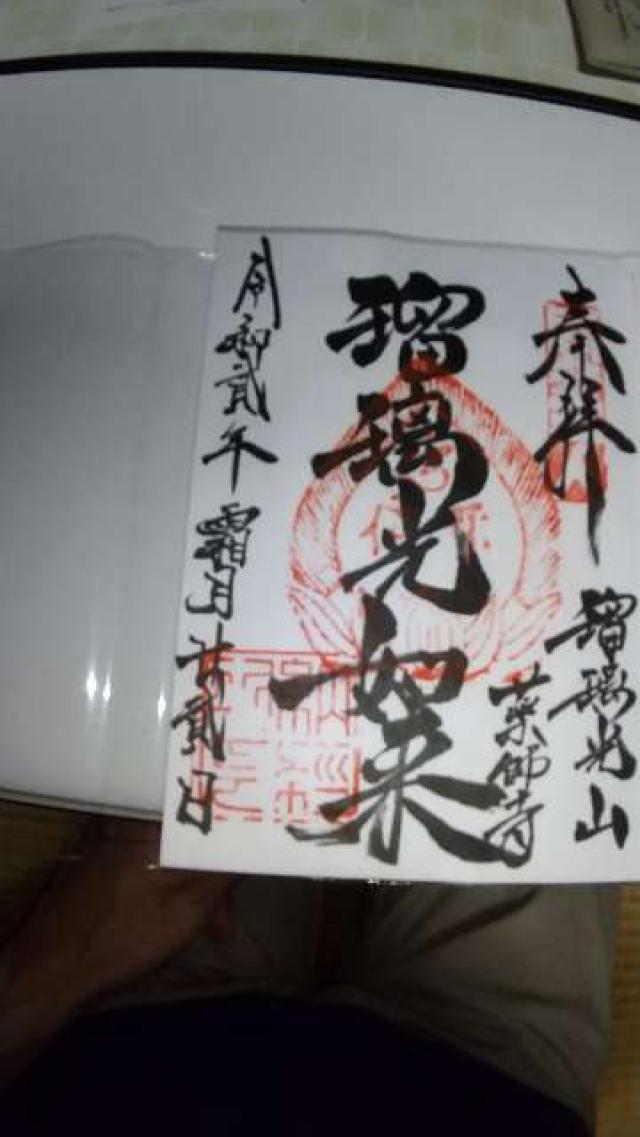 奉拝
瑠璃光山
薬師寺
瑠璃光如来
令和貳年霜月廿貳日